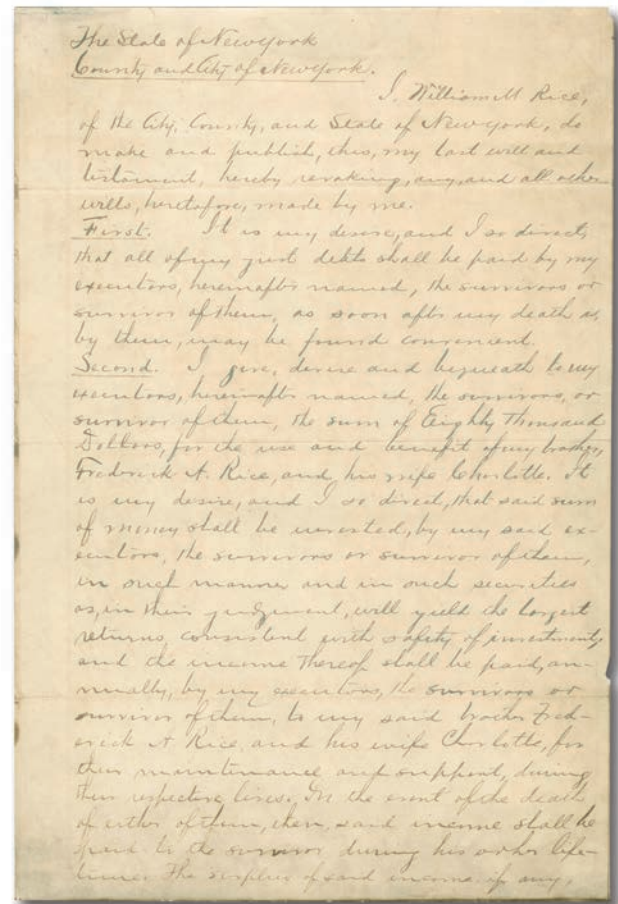 The State of New York
County and City of New York.
I, William M Rice,
of the City, County, and State of New York, do
make and publish, this, my last will and
testament, hereby revoking, any, and all other
wills, heretofore, made by me.
First. It is my desire, and I so direct,
that all of my just debts shall be paid by my
executors, hereinafter named, the survivors or
survivor of them, as soon after my death as,
by them, may be found convenient.
Second. I give, devise and bequeath to my
executors, hereinafter named, the survivors, or
survivor of them, the sum of Eighty Thousand
Dollars, for the use and benefit of my brother,
Frederick A. Rice, and his wife Charlotte. It
is my desire, and I so direct, that said sum
of money shall be invested, by my said ex-
ecutors, the survivors or survivor of them,
in such manner and in such securities
as, in their judgment, will yield the largest
returns, consistent with safety of investment,
and the income thereof shall be paid, an-
nually, by my executors, the survivors or
survivor of them, to my said brother Fred-
erick A Rice, and his wife Charlotte, for
their maintenance and support, during
their respective lives. In the event of the death
of either of them, then, said income shall be
paid to the survivor, during his or her life-
time. The surplus of said income, if any,